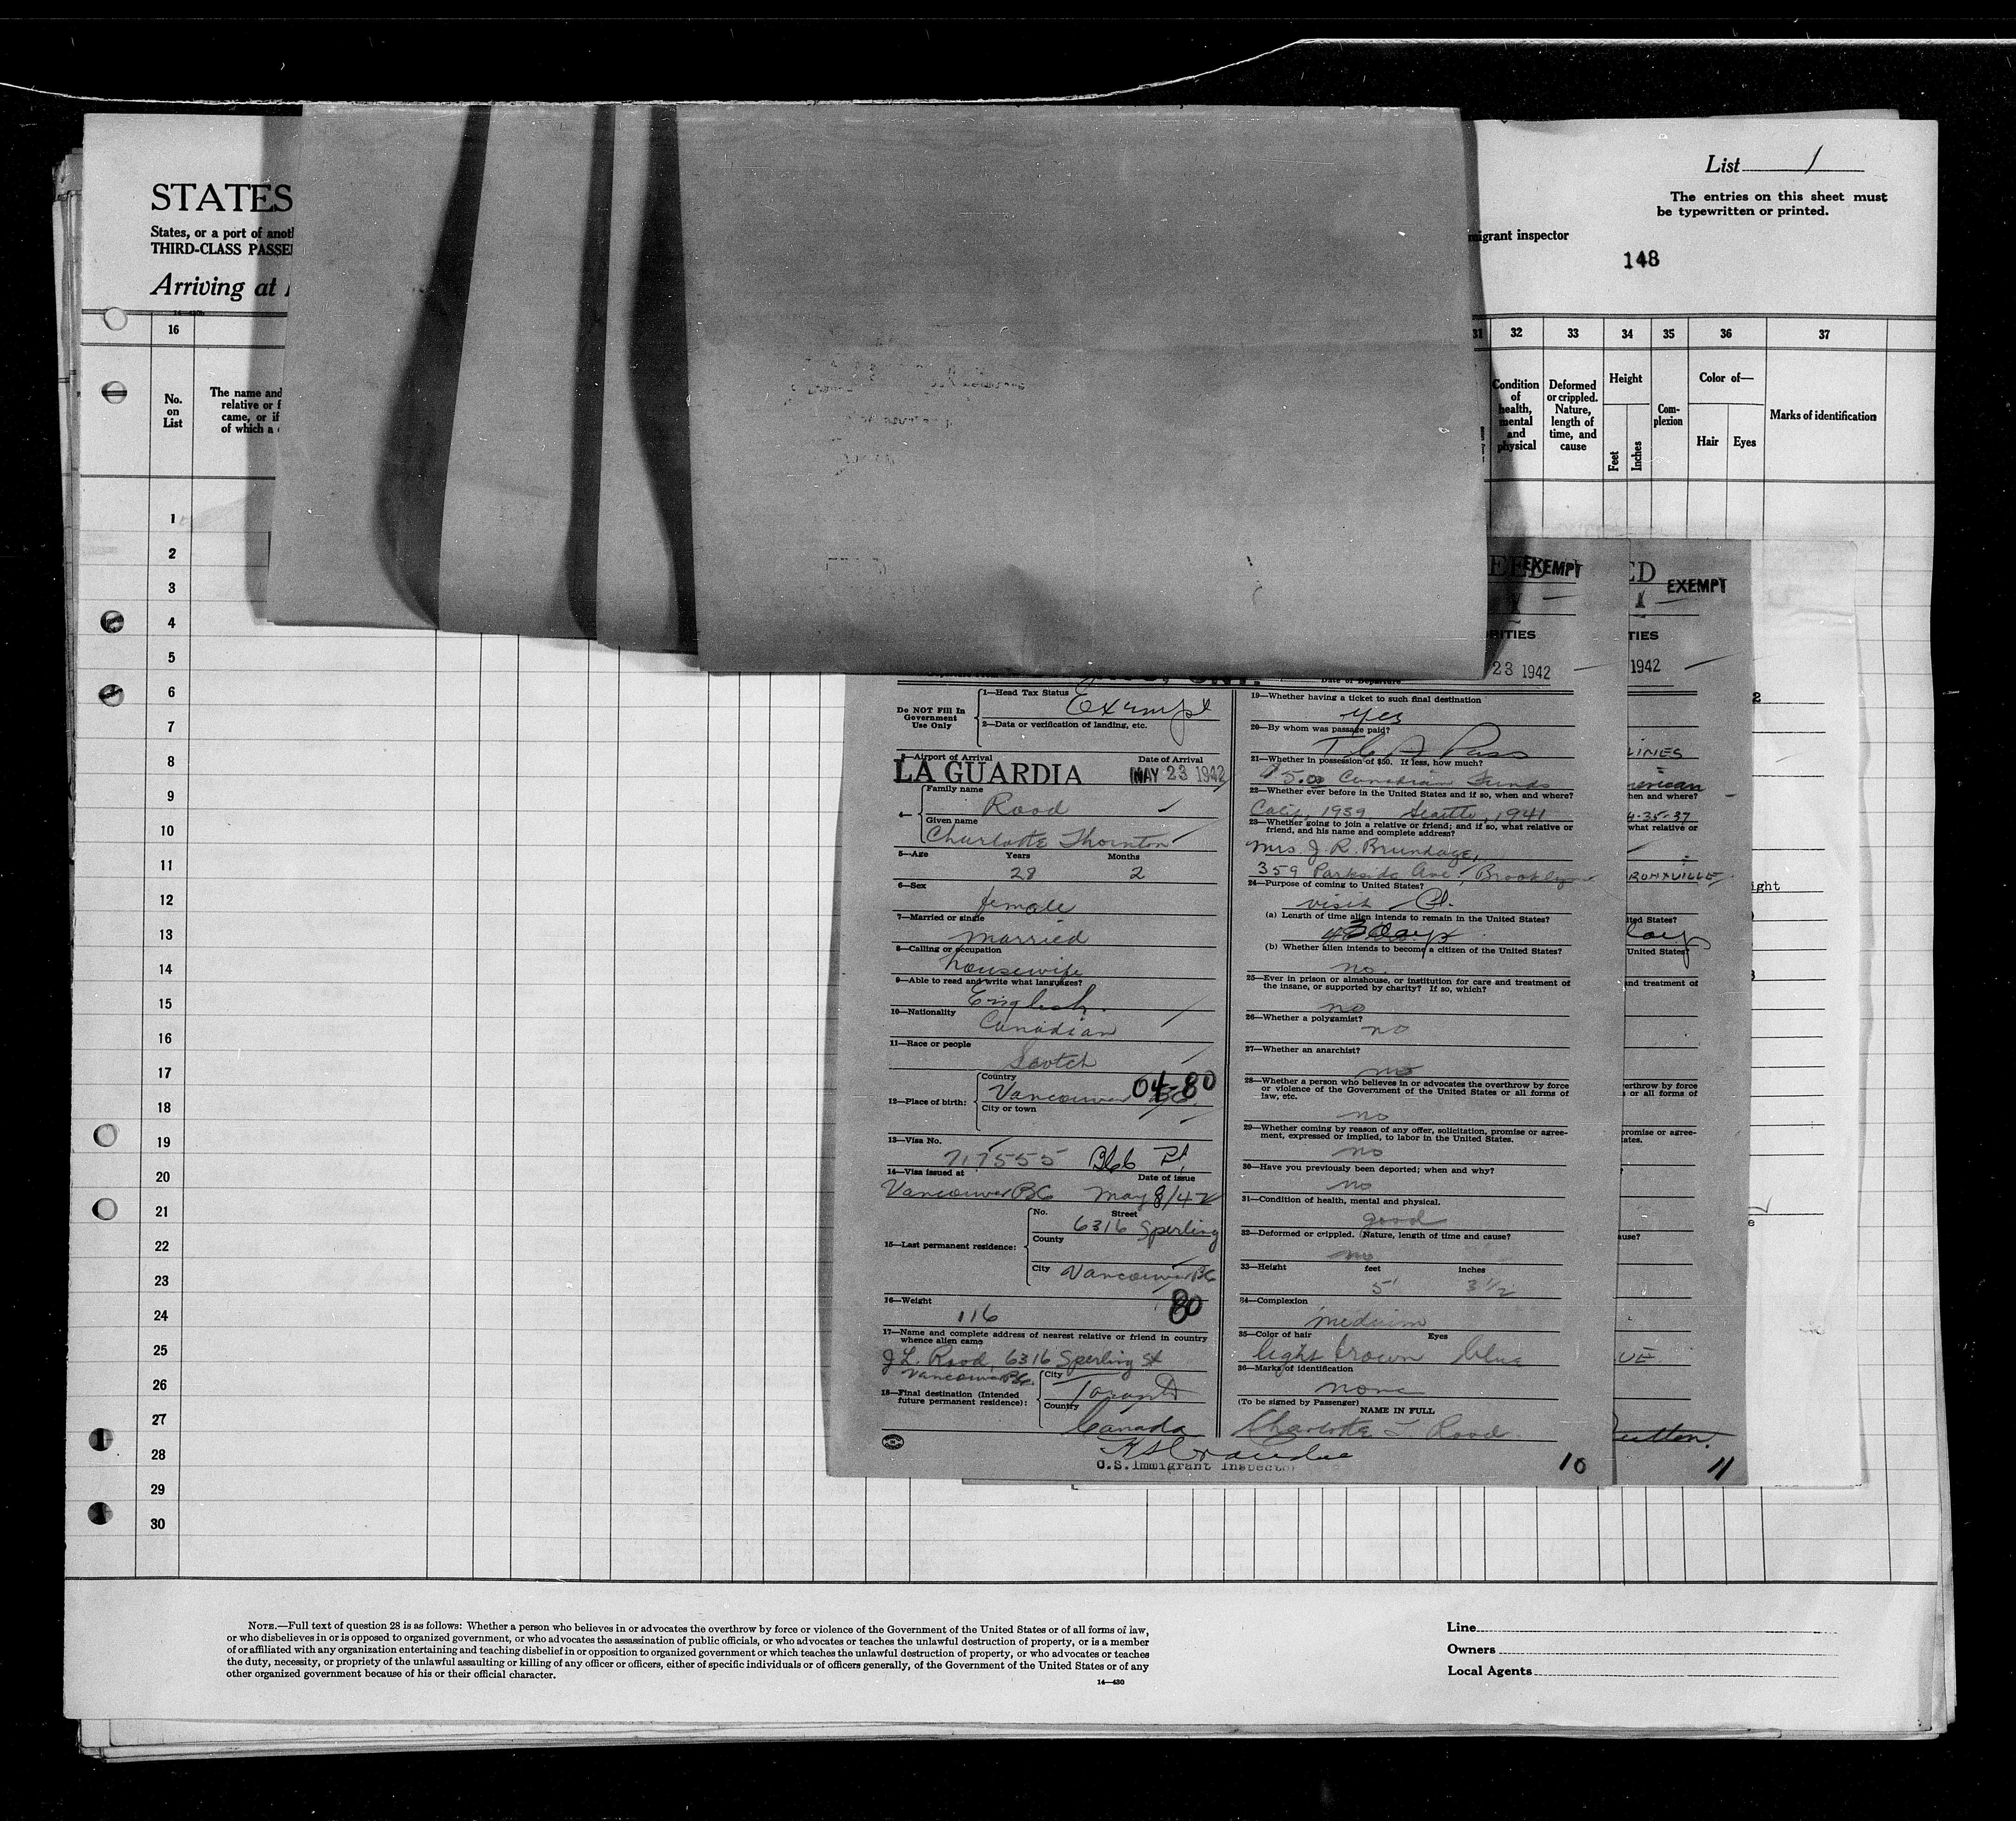 List 1
The entries on this sheet must
be typewritten or printed.
STATES
States, or a port of anot
THIRD-CLASS PASSE
migrant inspector
148
Arriving at
16
31 32 33 34 35 36 37
No.
on
List
The name and
relative or f
came, or if
of which a
Condition
of
health,
mental
and
physical
Deformed
or crippled.
Nature,
length of
time, and
cause
Height
Feet
Inches
Com-
plexion
Color of—
Hair
Eyes
Marks of identification
1
2
3
4
5
6
7
8
9
10
11
12
13
14
15
16
17
18
19
20
21
22
23
24
25
26
27
28
29
30
EXEMPT
RITIES
23 1942
ED
EXEMPT
TIES
1942
ONT.
Date of Departure
Do NOT Fill In
Government
Use Only
1—Head Tax Status
Exempt
2—Data or verification of landing, etc.
3—Airport of Arrival
Date of Arrival
LA GUARDIA MAY 23 1942
4—
Family name
Rood
Given name
Charlotte Thornton
5—Age Years Months
28 2
6—Sex
female
7—Married or single
married
8—Calling or occupation
housewife
9—Able to read and write what languages?
English.
10—Nationality
Canadian
11—Race or people
Scotch
12—Place of birth:
Country
Vancouver BC. 04-80
City or town
13—Visa No.
717555
14—Visa issued at Date of issue
Vancouver BC May 8/42
15—Last permanent residence:
No. Street
6316 Sperling
County
City Vancouver BC
80
16—Weight
116
17—Name and complete address of nearest relative or friend in country
whence alien came
J L. Rood, 6316 Sperling St
Vancouver BC.
18—Final destination (Intended
future permanent residence):
City
Toronto
Country
Canada
U.S. Immigrant Inspector
19—Whether having a ticket to such final destination
yes
20—By whom was passage paid?
Pass
21—Whether in possession of $50. If less, how much?
Canadian Funds
22—Whether ever before in the United States and if so, when and where?
Calif. 1939 Seattle, 1941
23—Whether going to join a relative or friend; and if so, what relative or
friend, and his name and complete address?
Mrs. J. R. Brundage,
359 Parkside Ave., Brooklyn
24—Purpose of coming to United States?
visit
(a) Length of time alien intends to remain in the United States?
days
(b) Whether alien intends to become a citizen of the United States?
no.
25—Ever in prison or almshouse, or institution for care and treatment of
the insane, or supported by charity? If so, which?
no
26—Whether a polygamist?
no
27—Whether an anarchist?
no
28—Whether a person who believes in or advocates the overthrow by force
or violence of the Government of the United States or all forms of
law, etc.
no
29—Whether coming by reason of any offer, solicitation, promise or agree-
ment, expressed or implied, to labor in the United States.
no
30—Have you previously been deported; when and why?
no
31—Condition of health, mental and physical.
good
32—Deformed or crippled. (Nature, length of time and cause?
no
33—Height feet inches
5' 3 1/2
34—Complexion
medium
35—Color of hair Eyes
light brown blue
36—Marks of identification
none
(To be signed by Passenger)
NAME IN FULL
Charlotte T Rood.
10
LINES
hen and where?
4-35-37
what relative or
RONXVILLE
ited States?
United States?
nd treatment of
erthrow by force
s or all forms of
promise or agree-
ates.
ause?
UE
11
ight
NOTE.—Full text of question 28 is as follows: Whether a person who believes in or advocates the overthrow by force or violence of the Government of the United States or of all forms of law,
or who disbelieves in or is opposed to organized government, or who advocates the assassination of public officials, or who advocates or teaches the unlawful destruction of property, or is a member
of or affiliated with any organization entertaining and teaching disbelief in or opposition to organized government or which teaches the unlawful destruction of property, or who advocates or teaches
the duty, necessity, or propriety of the unlawful assaulting or killing of any officer or officers, either of specific individuals or of officers generally, of the Government of the United States or of any
other organized government because of his or their official character.
14—430
Line
Owners
Local Agents